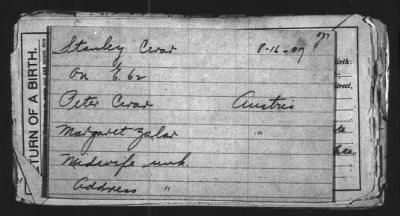 TURN OF A BIRTH.
Stanley Cerar 8-16-07
On E 62
Peter Cerar Austria
Margaret Zalar "
Midwife unk.
Address "
irth:
treet,